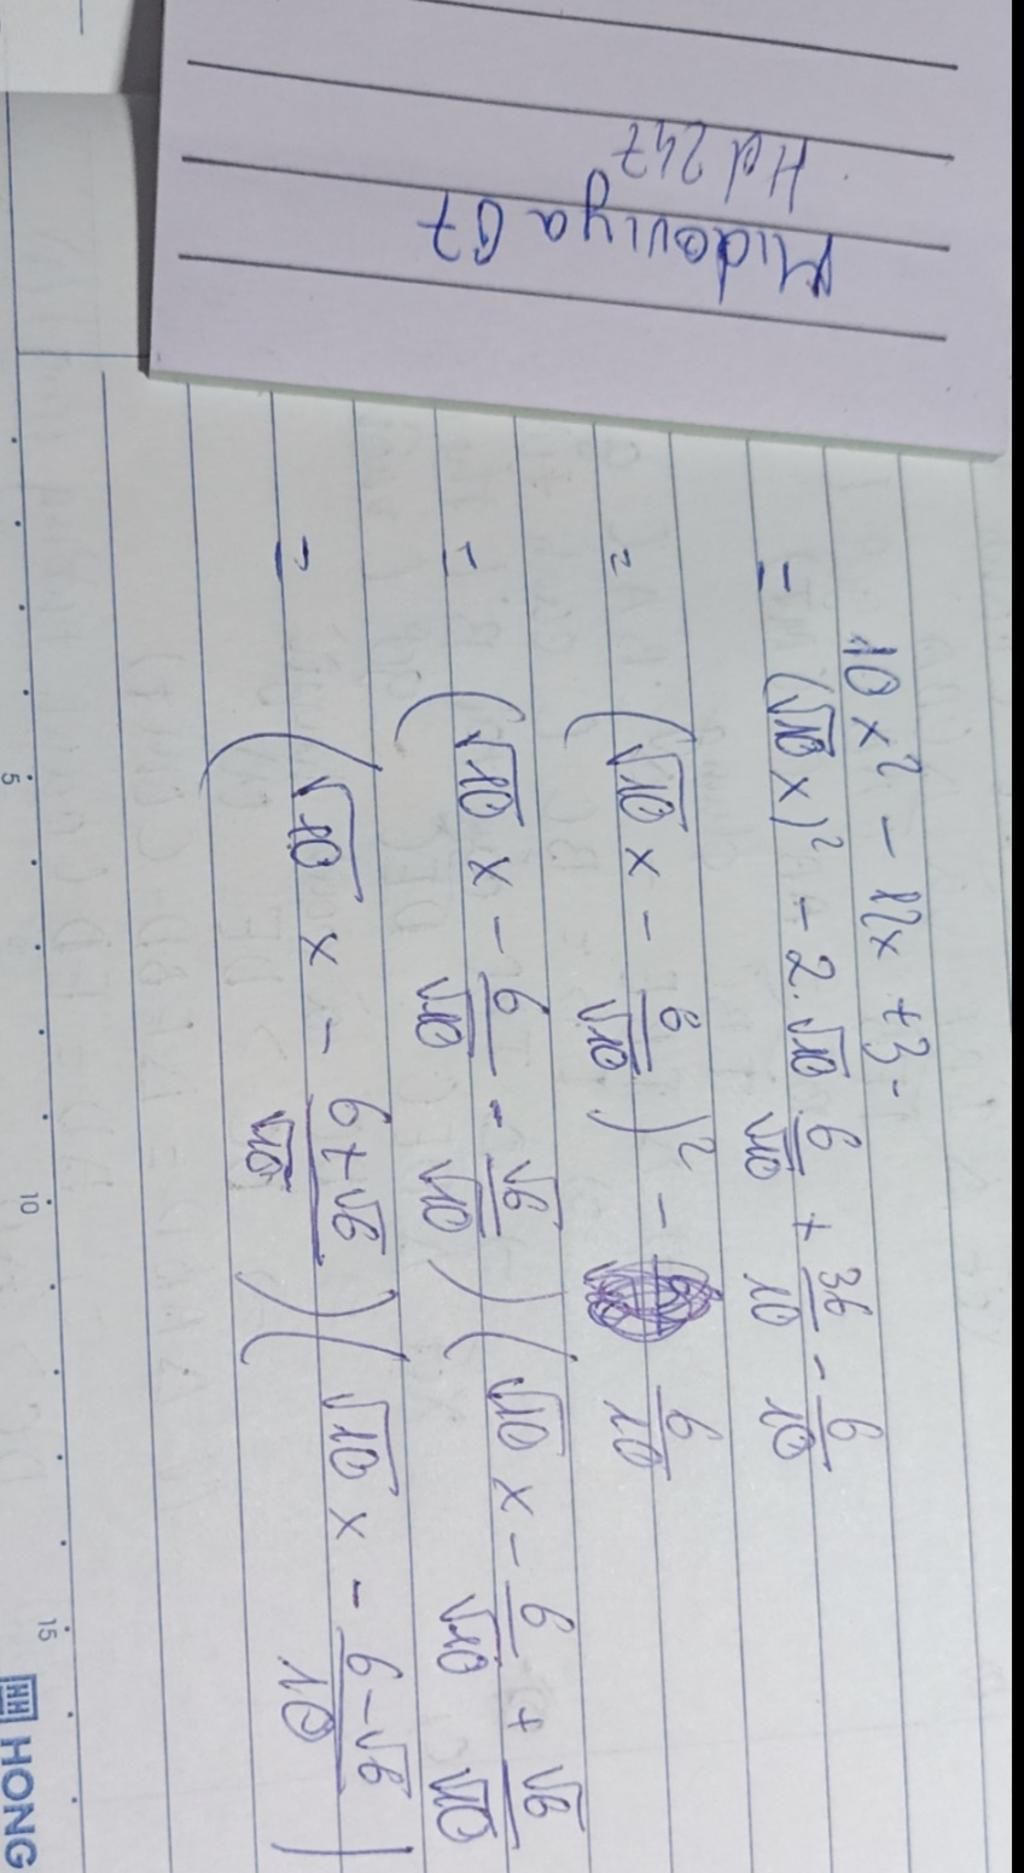 Midoviya 07
Hd 247
10x² - 12x + 3
= (√10 x)² - 2.√10 6/√10 + 36/10 - 6/10
= (√10 x - 6/√10)² - 6/10
= (√10 x - 6/√10 - √6/√10) (√10 x - 6/√10 + √6/√10)
= (√10 x - 6+√6/√10) (√10 x - 6-√6/10)
5 10 15
HH HONG